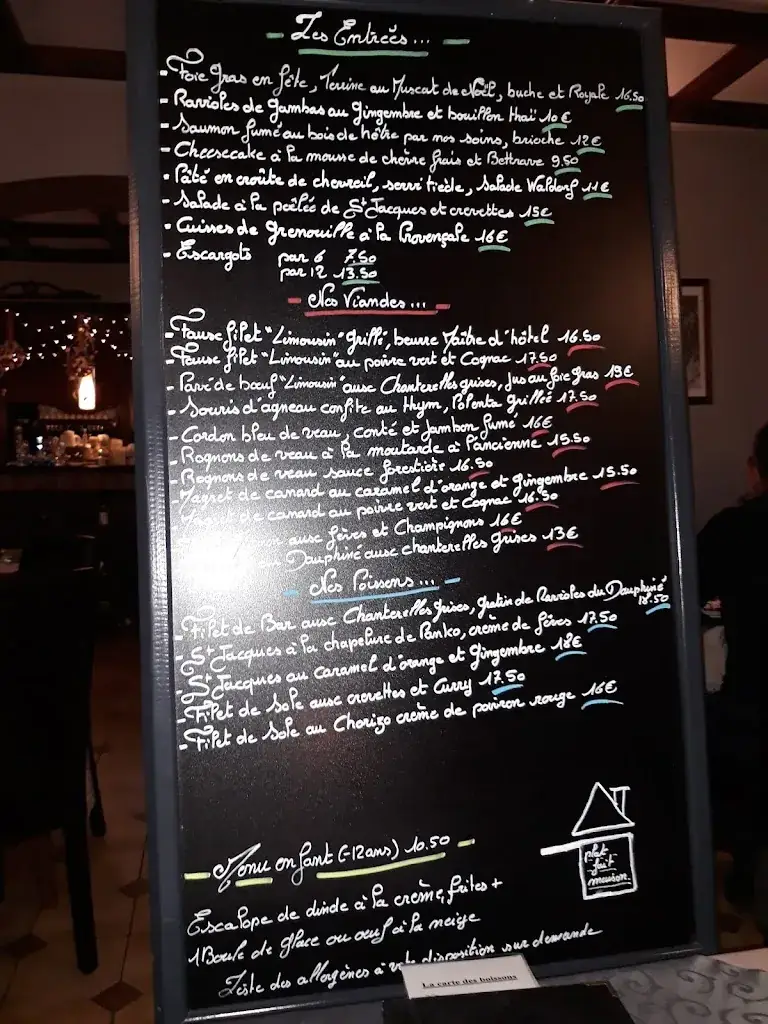 Les Entrées...
- Foie Gras en fête, Terrine au Muscat de Noël, buche et Royale 16.50
- Ravioles de Gambas au Gingembre et bouillon Thaï 10€
- Saumon fumé au bois de hêtre par nos soins, brioche 12€
- Cheesecake à la mousse de chèvre frais et Bettrave 9.50
- Pâté en croûte de chevreuil, servi tiède, Salade Waldorf 11€
- Salade à la poêlée de St Jacques et crevettes 15€
- Cuisses de Grenouille à la Provençale 16€
- Escargots par 6 7.50
par 12 13.50
Nos Viandes...
- Fausse filet "Limousin" Grillé, beurre Maître d'hôtel 16.50
- Fausse filet "Limousin" au poivre vert et Cognac 17.50
- Pavé de bœuf "Limousin" aux Chanterelles grises, jus au foie Gras 19€
- Souris d'agneau confite au thym, Polenta Grillée 17.50
- Cordon bleu de veau, conté et Jambon fumé 16€
- Rognons de veau à la moutarde à l'ancienne 15.50
- Rognons de veau sauce forestière 16.50
- Magret de canard au caramel d'orange et gingembre 15.50
Magret de canard au poivre vert et Cognac 16.50
aux fèves et Champignons 16€
Dauphiné aux chanterelles Grises 13€
Nos Poissons...
- Filet de Bar aux Chanterelles Grises, gratin de Ravioles du Dauphiné
18.50
- St Jacques à la chapelure de Panko, crème de fèves 17.50
- St Jacques au caramel d'orange et Gingembre 18€
- Filet de Sole aux crevettes et Curry 17.50
- Filet de Sole au Chorizo crème de poivron rouge 16€
plat
fait
maison
Menu enfant (-12ans) 10.50
Escalope de dinde à la crème, frites +
1 Boule de glace ou œuf à la neige
Liste des allergènes à votre disposition sur demande
La carte des boissons